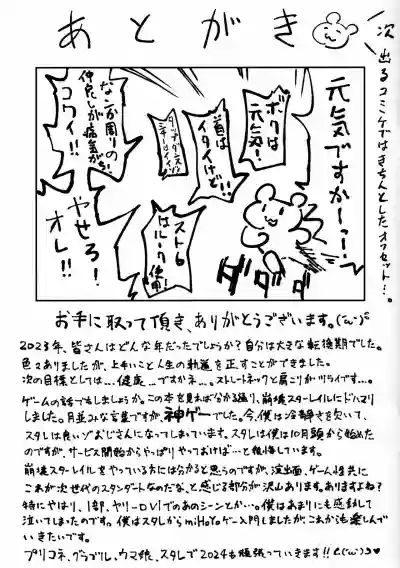 あとがき
次出るコミケではきちんとしたオフセット…。
元気ですかーっ!
ボクは元気!
首はイタイけど!!
スト6はルーク使用!
なンか周りの仲良しが病気がち!
コワイ!!
やせろ!オレ!!
ダダダ
お手に取って頂き、ありがとうございます。
2023年、皆さんはどんな年だったでしょうか?自分は大きな転換期でした。
色々ありましたが、上手いこと人生の軌道を正すことができました。
次の目標としては…健康…ですかネ…。ストレートネックと肩こりがツライです…。
ゲームの話でもしましょうか。この本を見れば分かる通り、崩壊スターレイルにドハマリ
しました。月並みな言葉ですが、神ゲーでした。今、僕は冷静さを欠いて、
スタレは良いゾおじさんになってしまっています。スタレは僕は10月頭から始めた
のですが、サービス開始からやっぱやっておけば…と後悔しています。
崩壊スターレイルをやっている方には分かると思うのですが、演出面、ゲーム性共に
これが次世代のスタンダードなのだな、と感じる部分が沢山あります。ありますよね?
特にやはり、1部、ヤリーロⅥでのあのシーンとか…。僕はあまりにも感動して
泣いてしまったのです。僕はスタレからmiHoYoゲー入門しましたが、これからも楽しんで
いきたいです。
プリコネ、グラブル、ウマ娘、スタレで2024も頑張っていきます!!